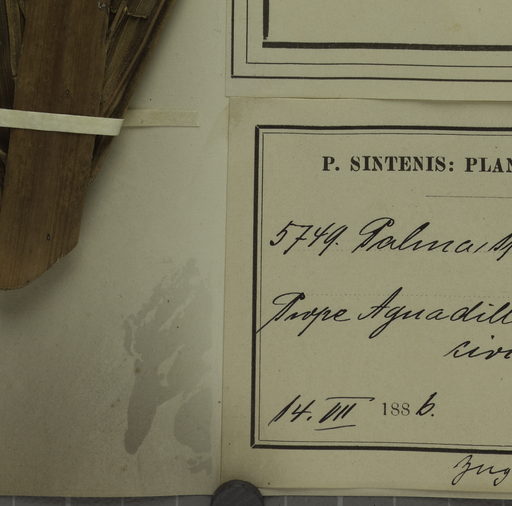 P. SINTENIS: PLAN
5749. Palma,
Prope Aguadill
14. VIII 1886.